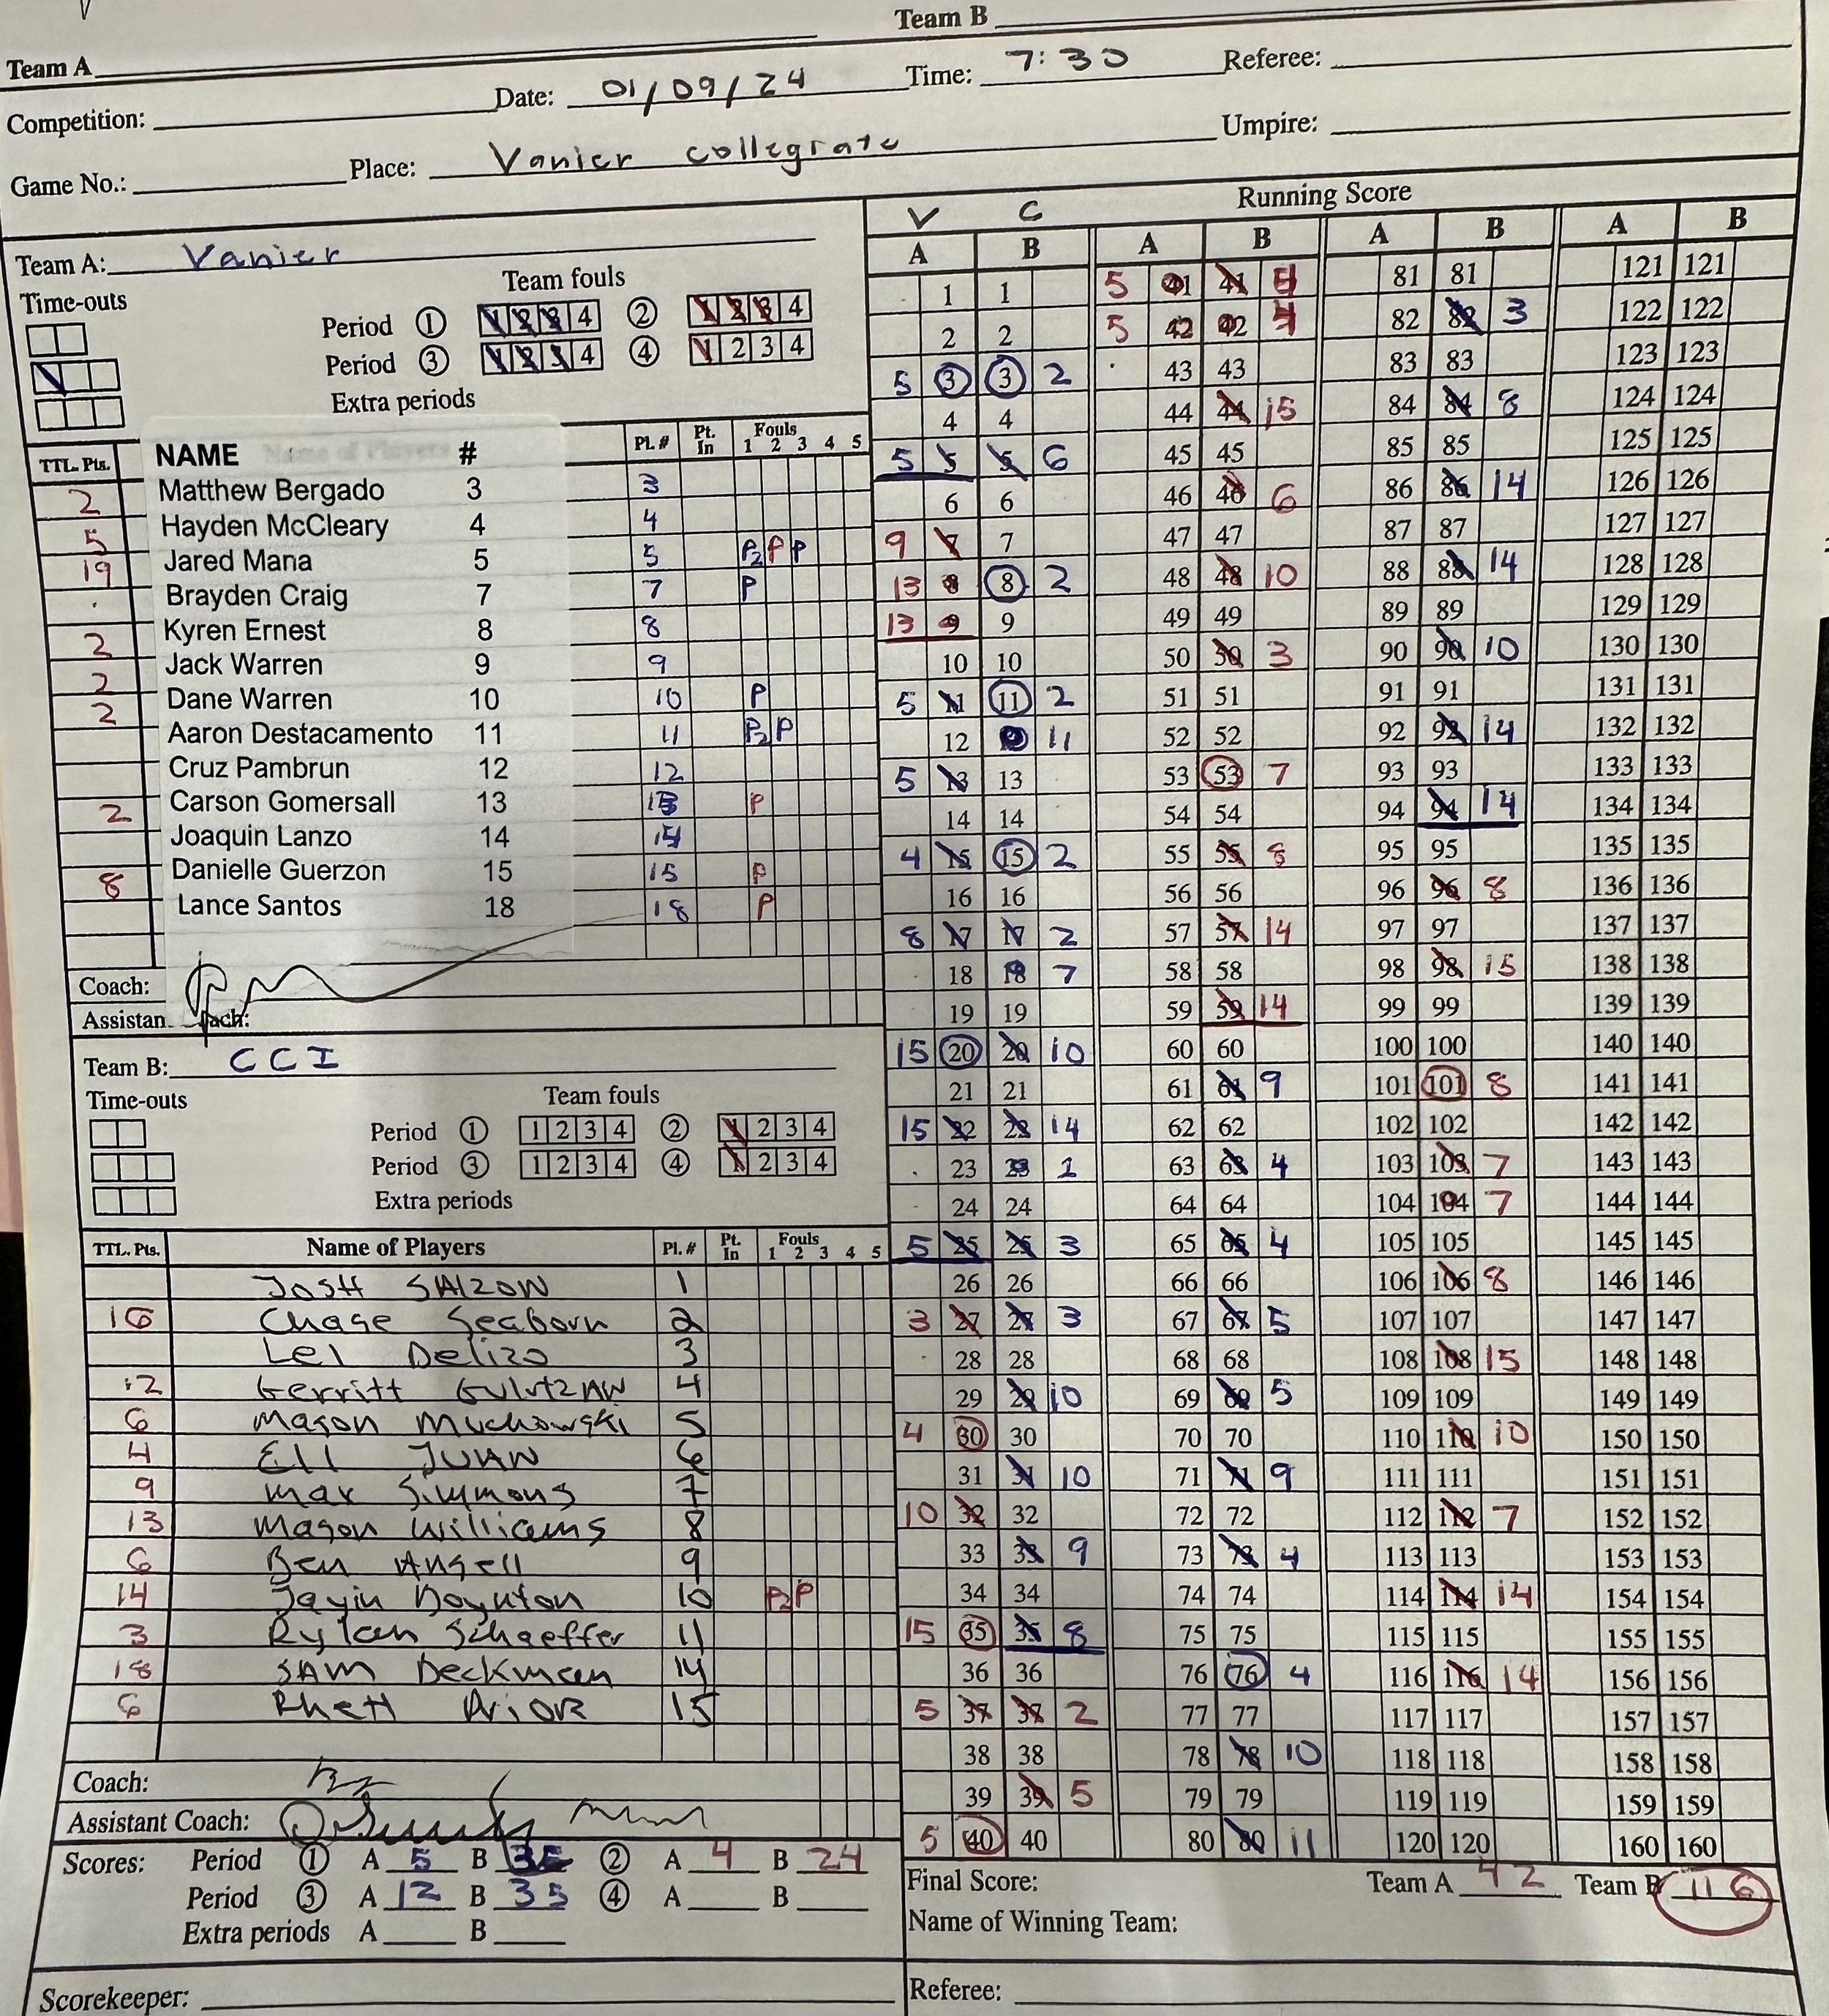 Team A Team B
Competition: Date: 01/09/24 Time: 7:30 Referee:
Game No.: Place: Vanier collegrate Umpire:
Team A: Vanier
Time-outs Team fouls
Period 1 1 2 3 4 2 1 2 3 4
Period 3 1 2 3 4 4 1 2 3 4
Extra periods
TTL. Pts. NAME # Pl. # Pt. In Fouls 1 2 3 4 5
2 Matthew Bergado 3 3
Hayden McCleary 4 4
5 Jared Mana 5 5 P2 P P
19 Brayden Craig 7 7 P
Kyren Ernest 8 8
2 Jack Warren 9 9
2 Dane Warren 10 10 P
2 Aaron Destacamento 11 11 P2 P
Cruz Pambrun 12 12
2 Carson Gomersall 13 13 P
Joaquin Lanzo 14 14
8 Danielle Guerzon 15 15 P
Lance Santos 18 18 P
Coach:
Assistan
Team B: CCI
Time-outs Team fouls
Period 1 1 2 3 4 2 1 2 3 4
Period 3 1 2 3 4 4 1 2 3 4
Extra periods
TTL. Pts. Name of Players Pl. # Pt. In Fouls 1 2 3 4 5
1
16 Chase Seaborn 2
Lel Delizo 3
12 Gerritt 4
6 Mason Muchowski 5
4 Ell JUAN 6
9 Max Simmons 7
13 Mason Williams 8
6 Ben Angell 9
14 Jayin Boynton 10 P2 P
3 Rylan Schaeffer 11
18 SAM Beckman 14
6 Rhett PriOR 15
Coach:
Assistant Coach:
Scores: Period 1 A 5 B 35 2 A 4 B 24
Period 3 A 12 B 35 4 A B
Extra periods A B
Scorekeeper:
Running Score
V C
A B A B A B A B
1 1 5 41 41 81 81 121 121
2 2 5 42 42 4 82 82 3 122 122
5 3 3 2 43 43 83 83 123 123
4 4 44 44 15 84 84 8 124 124
5 5 5 6 45 45 85 85 125 125
6 6 46 46 6 86 86 14 126 126
9 7 7 47 47 87 87 127 127
13 8 8 2 48 48 10 88 88 14 128 128
13 9 9 49 49 89 89 129 129
10 10 50 50 3 90 90 10 130 130
5 11 11 2 51 51 91 91 131 131
12 12 11 52 52 92 92 14 132 132
5 13 13 53 53 7 93 93 133 133
14 14 54 54 94 94 14 134 134
4 15 15 2 55 55 8 95 95 135 135
16 16 56 56 96 96 8 136 136
8 17 17 2 57 57 14 97 97 137 137
18 18 7 58 58 98 98 15 138 138
19 19 59 59 14 99 99 139 139
15 20 20 10 60 60 100 100 140 140
21 21 61 61 9 101 101 8 141 141
15 22 22 14 62 62 102 102 142 142
23 23 1 63 63 4 103 103 7 143 143
24 24 64 64 104 104 7 144 144
5 25 25 3 65 65 4 105 105 145 145
26 26 66 66 106 106 8 146 146
3 27 27 3 67 67 5 107 107 147 147
28 28 68 68 108 108 15 148 148
29 29 10 69 69 5 109 109 149 149
4 30 30 70 70 110 110 10 150 150
31 31 10 71 71 9 111 111 151 151
10 32 32 72 72 112 112 7 152 152
33 33 9 73 73 4 113 113 153 153
34 34 74 74 114 114 14 154 154
15 35 35 8 75 75 115 115 155 155
36 36 76 76 4 116 116 14 156 156
5 37 37 2 77 77 117 117 157 157
38 38 78 78 10 118 118 158 158
39 39 5 79 79 119 119 159 159
5 40 40 80 80 11 120 120 160 160
Final Score: Team A 42 Team B 116
Name of Winning Team:
Referee: